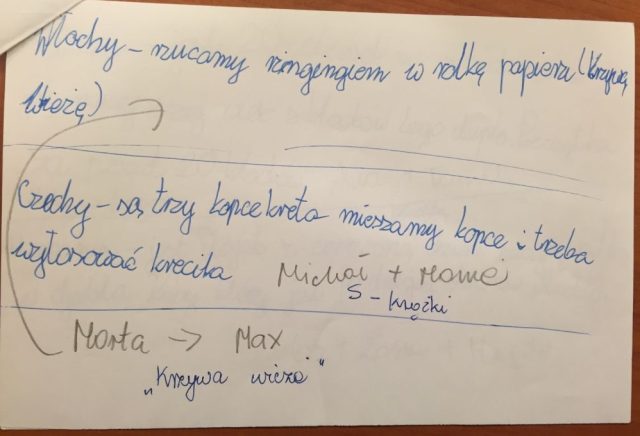 Włochy – rzucamy ringingiem w rolkę papieru (Krzywą
Wieżę)
Czechy – są trzy kopce kreta mieszamy kopce i trzeba
wylosować krecika
Michał + Mamé
S – krążki
Marta -> Max
„Krzywa wieża"